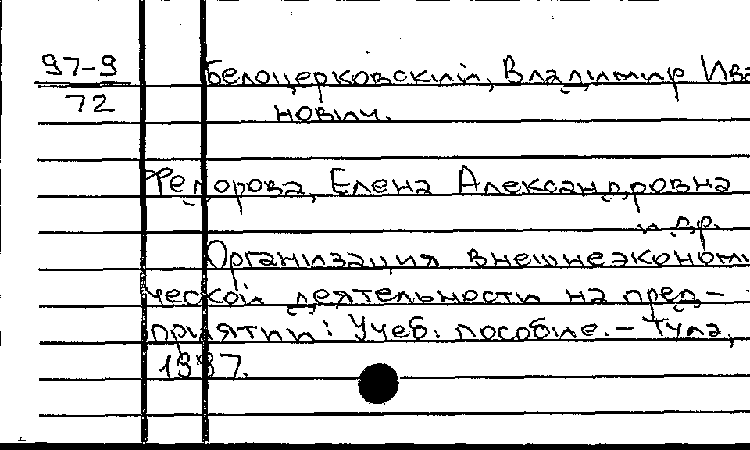 97-9
72
Белоцерковский, Владимир Ива
нович.
Федорова, Елена Александровна
и др.
Организация внешнеэкономи
ческой деятельности на пред-
приятии: Учеб. пособие. - Тула,
1997.